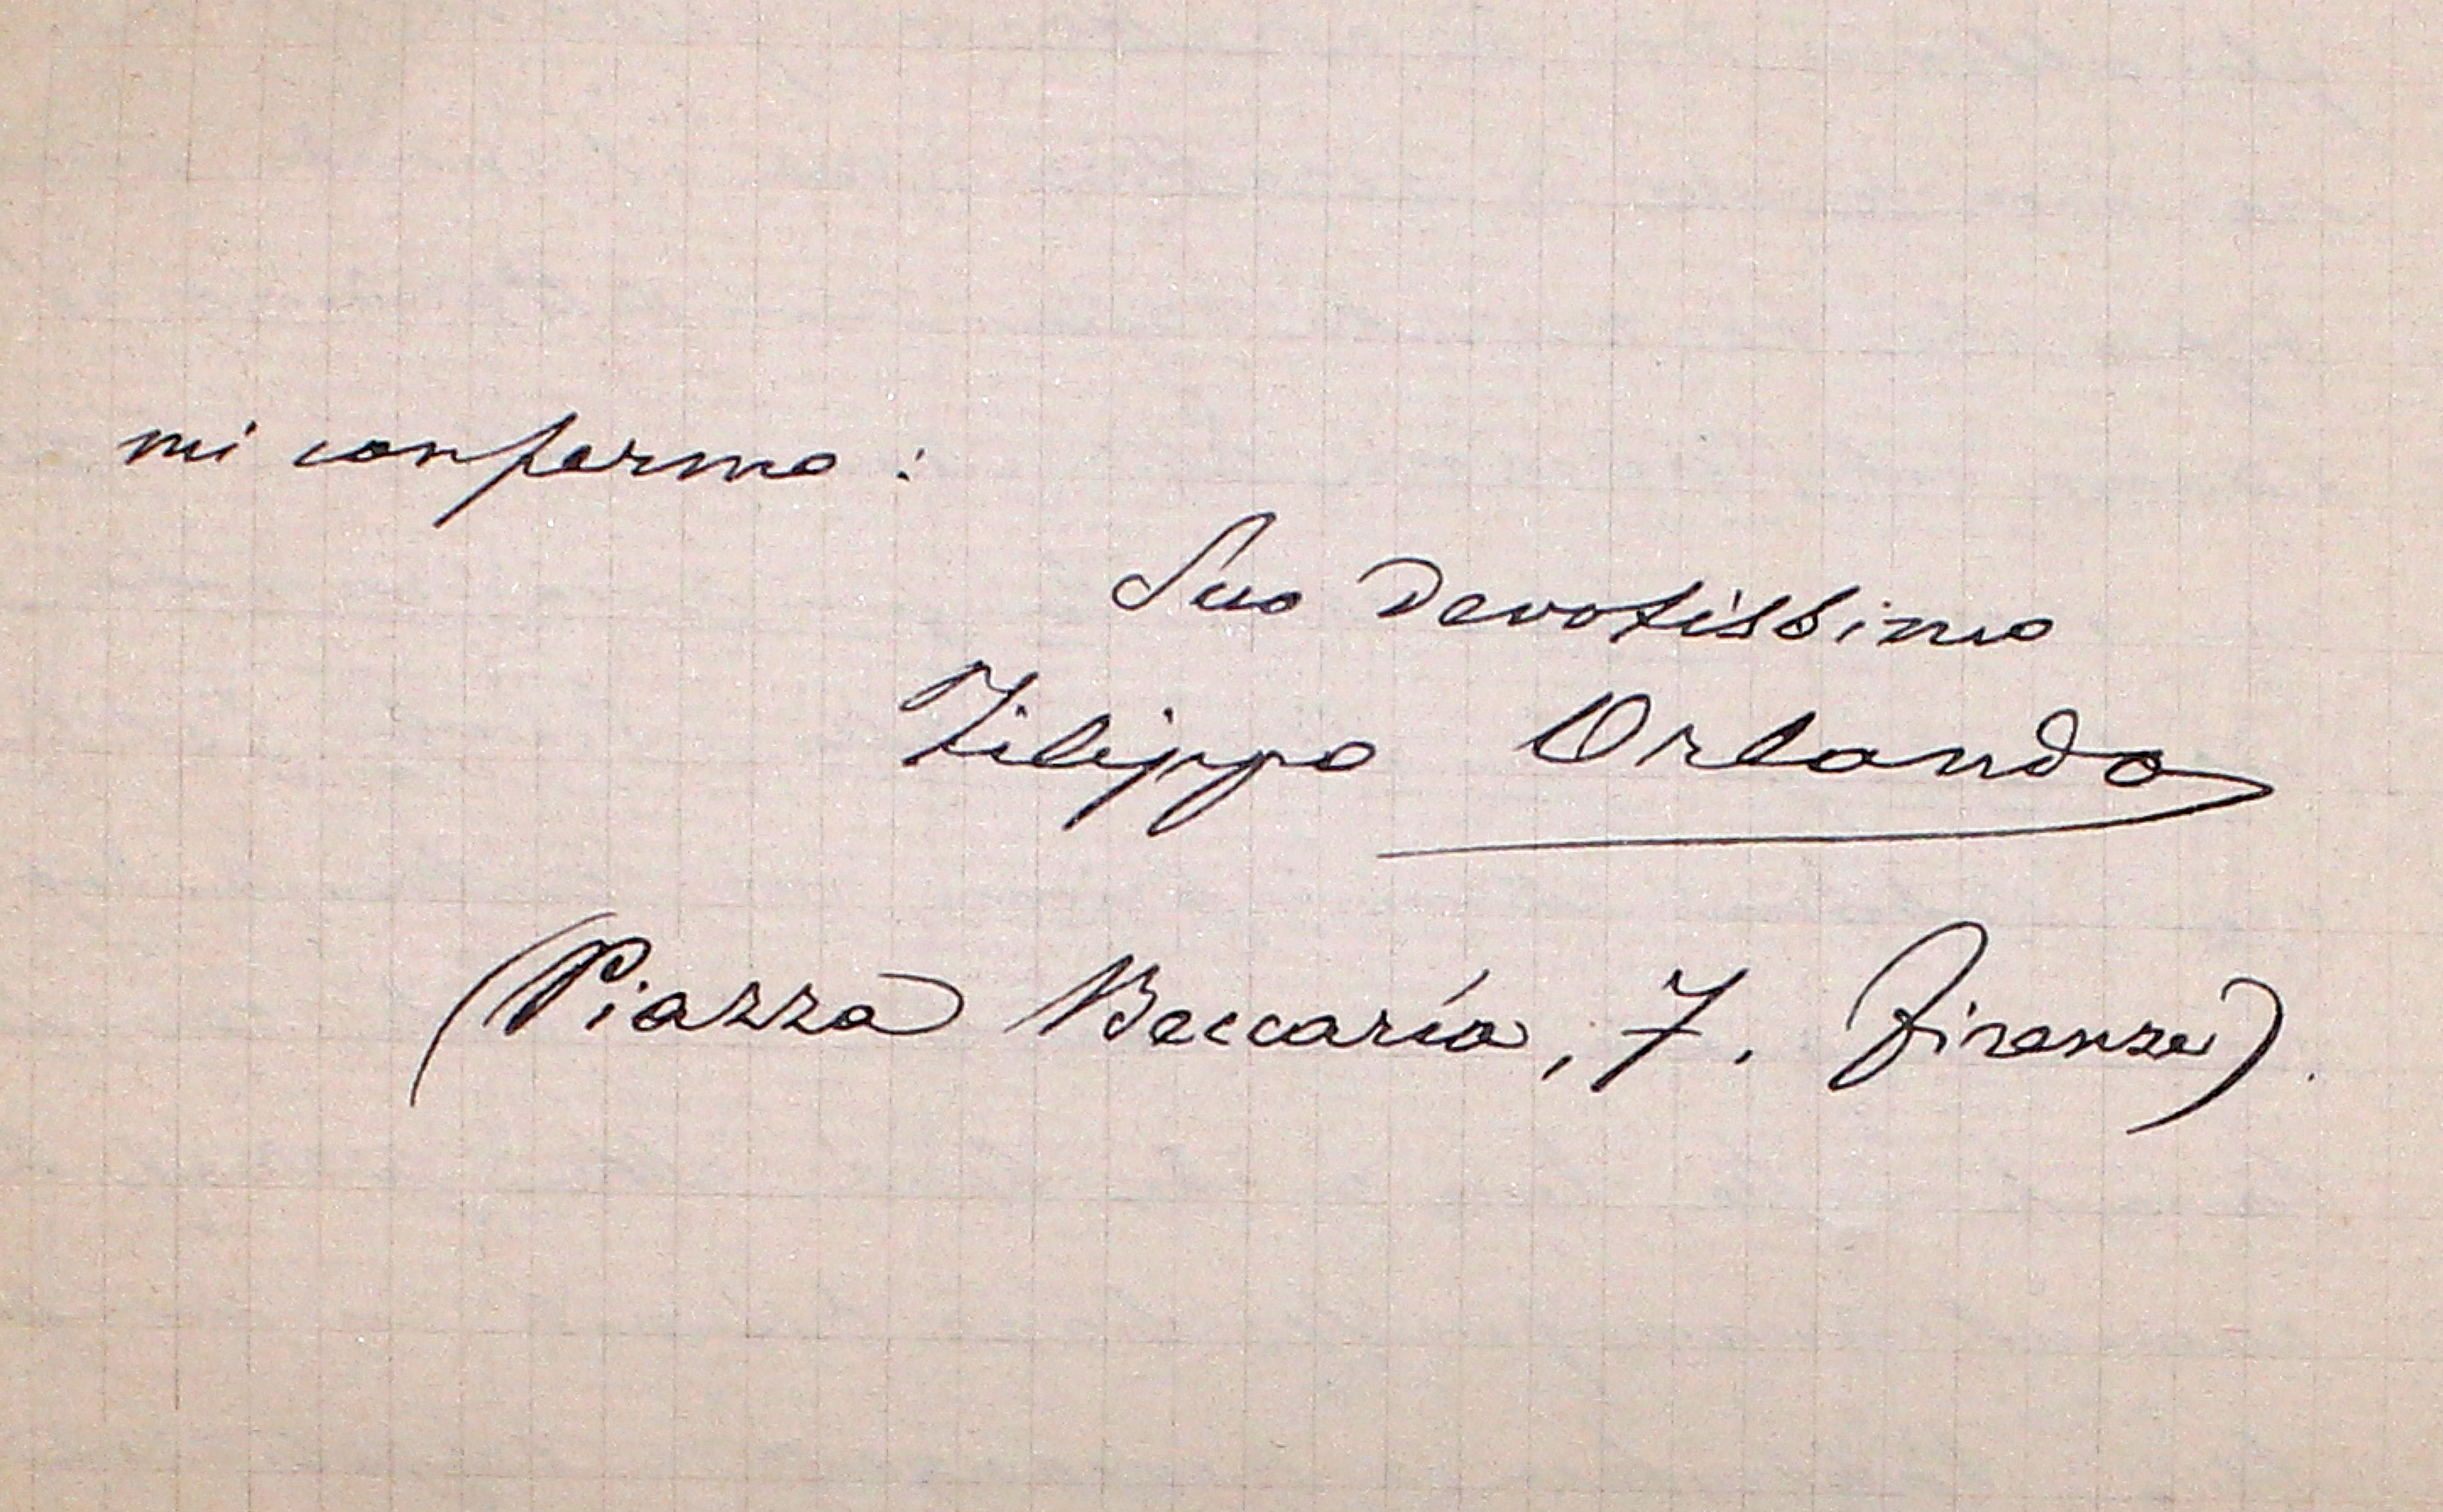 mi confermo:
Suo Devotissimo
Filippo Orlando
(Piazza Beccaria, 7. Firenze).